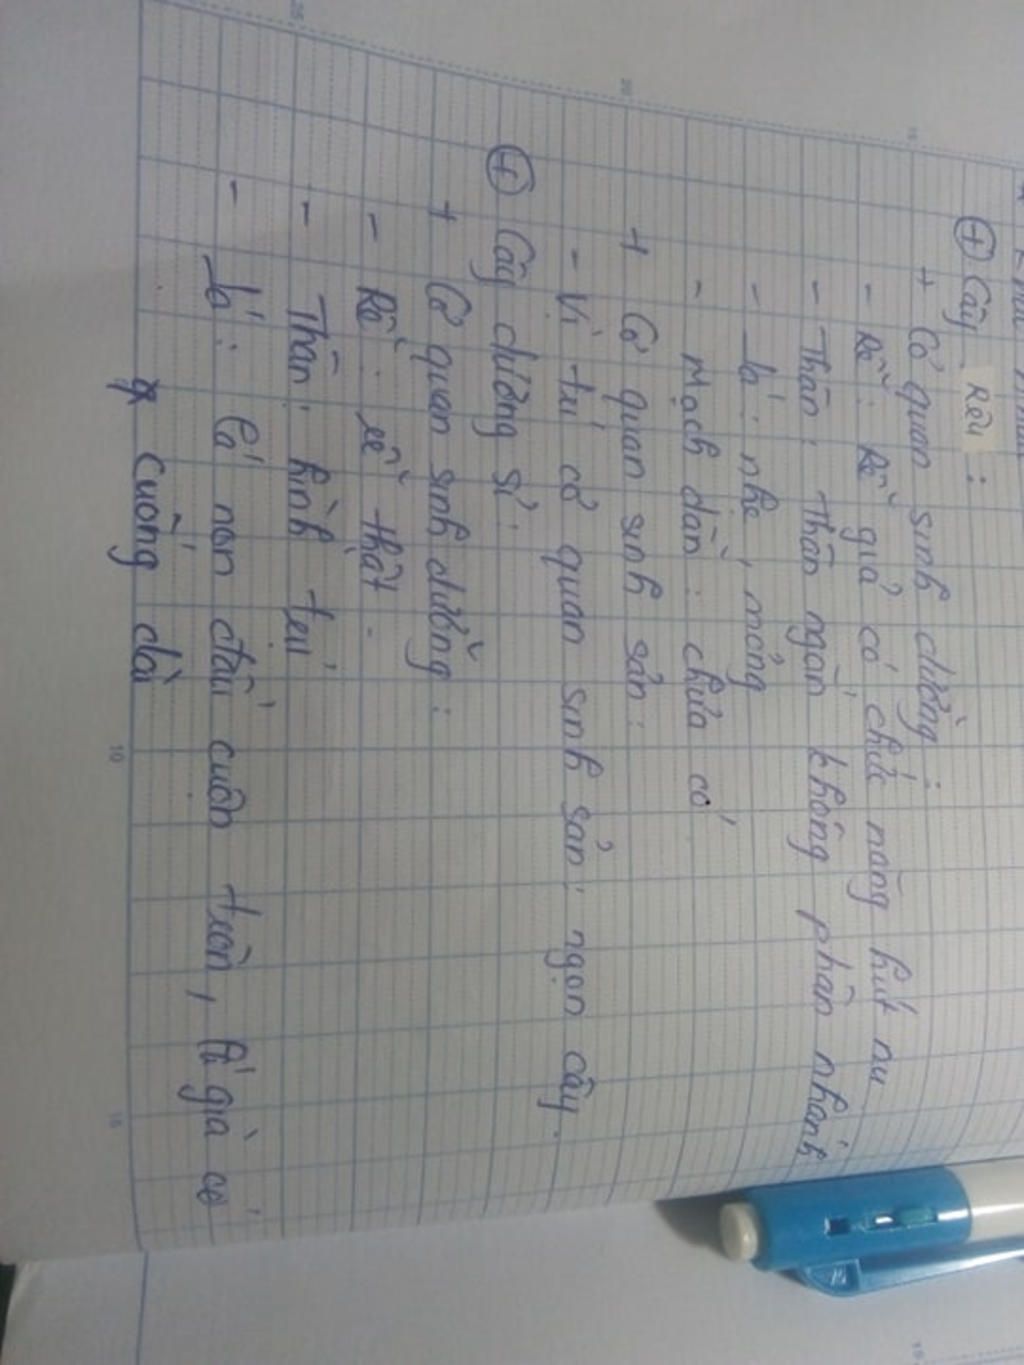 ⊕ Cây Rêu :
+ Cơ quan sinh dưỡng :
- Rễ : Rễ giả có chức năng hút nư
- Thân : Thân ngắn không phân nhánh
- Lá : nhỏ, mỏng
- Mạch dẫn : chưa có
+ Cơ quan sinh sản :
- Vị trí cơ quan sinh sản : ngọn cây.
⊕ Cây dương sỉ :
+ Cơ quan sinh dưỡng :
- Rễ : rễ thật .
- Thân : hình trụ
- Lá : lá non đầu cuộn tròn, lá già có
cuống dài
25
20
15
10
15
15